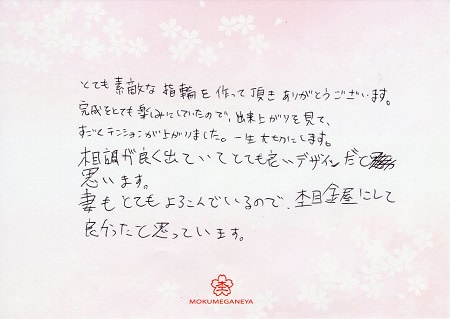 とても素敵な指輪を作って頂きありがとうございます。
完成をとても楽しみにしていたので、出来上がりを見て、
すごくテンションが上がりました。一生大切にします。
相談が良く出ていてとても良いデザインだと
思います。
妻もとてもよろこんでいるので、杢目金屋にして
良かったと思っています。
杢
MOKUMEGANEYA